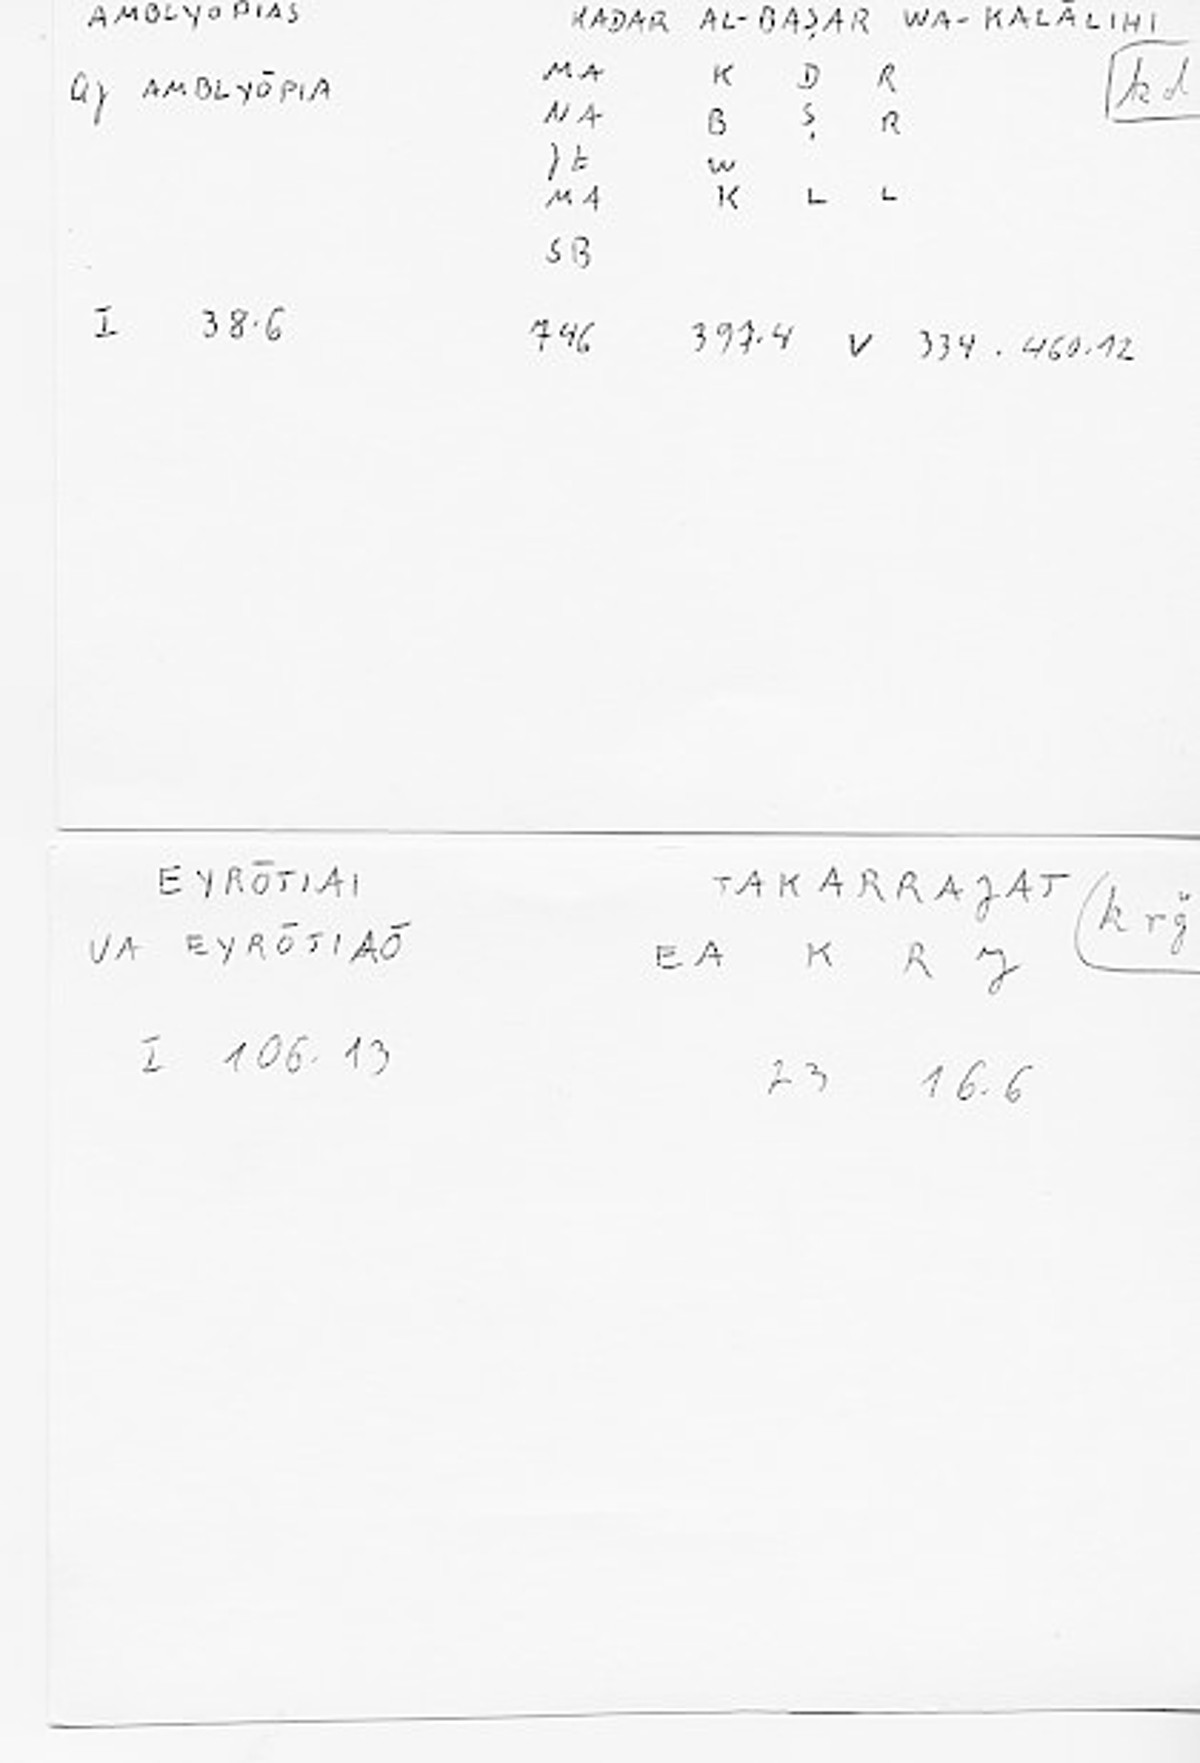 AMBLYOPIAS KADAR AL-BAṢAR WA-KALĀLIHI
AMBLYŌPIA MA K D R kd
NA B Ṣ R
W
MA K L L
SB
I 38.6 746 397.4 V 334. 460.12
EYRŌTIAI TAKARRAJAT krǧ
VA EYRŌTIAŌ EA K R J
I 106.13 23 16.6